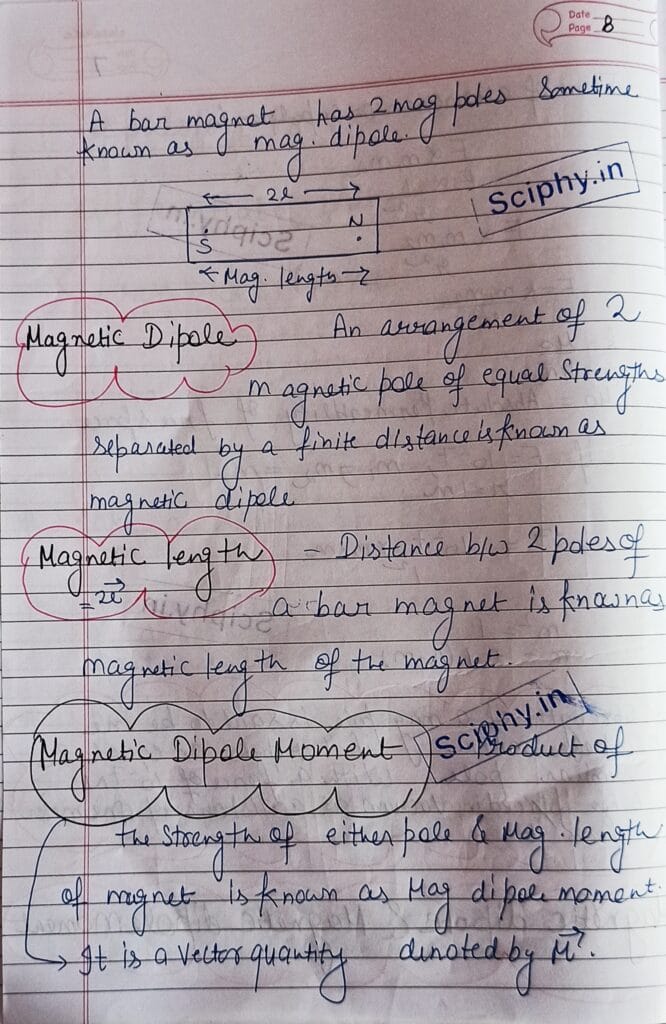 Date
Page 8
A bar magnet has 2 mag poles Sometime
known as mag. dipole.
Sciphy.in
← 2l →
S N
← Mag. length →
Magnetic Dipole An arrangement of 2
magnetic pole of equal Strengths
separated by a finite distance is known as
magnetic dipole
Magnetic length – Distance b/w 2 poles of
= 2l⃗ a bar magnet is known as
magnetic length of the magnet.
Magnetic Dipole Moment Product of
Sciphy.in
the Strength of either pole & Mag. length
of magnet is known as Mag dipole moment.
→ It is a Vector quantity denoted by M⃗.